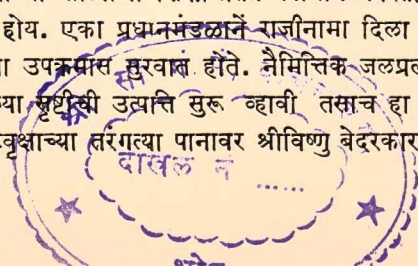 होय. एका प्रधानमंडळानें राजीनामा दिला
उपक्रमास सुरवात होते. नैमित्तिक जलप्रल
सृष्टीची उत्पात्ति सुरू व्हावी तसाच हा
वृक्षाच्या तरंगत्या पानावर श्रीविष्णु बेदरकार
दाखल नं ......